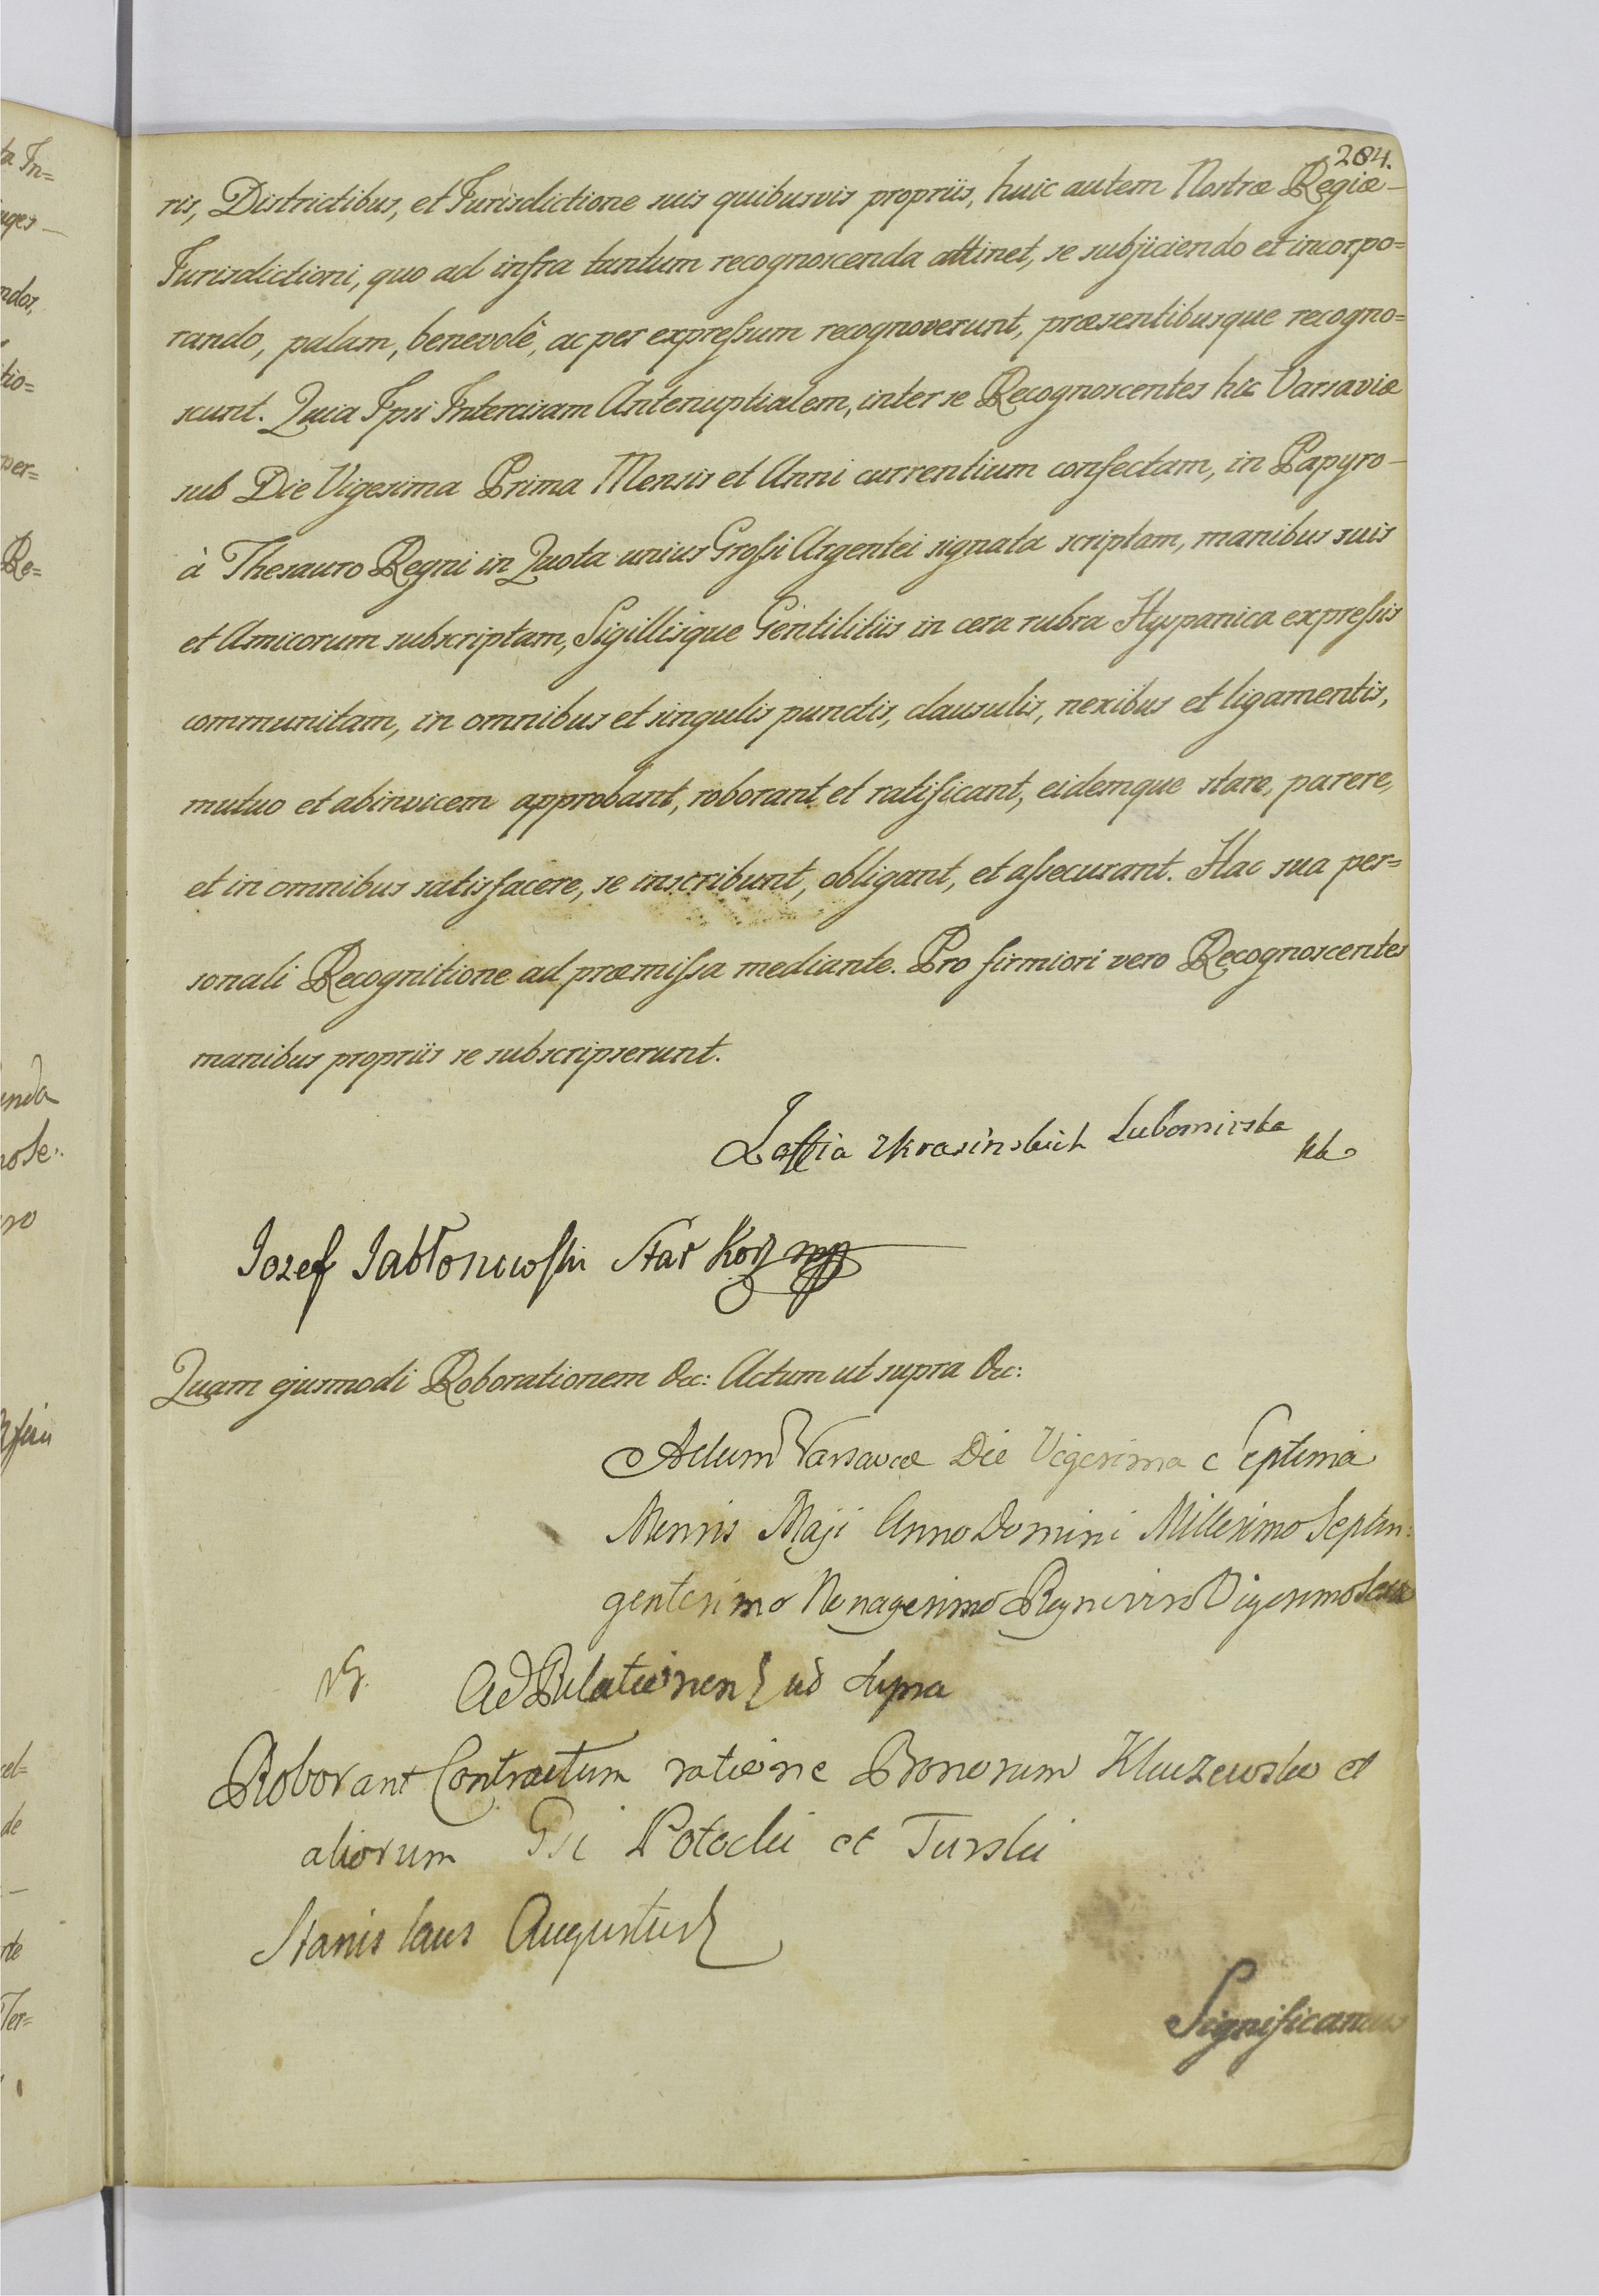 204.
ris, Districtibus, et Jurisdictione suis quibusvis propriis, huic autem Nostræ Regiæ-
Jurisdictioni, quo ad infra tantum recognoscenda attinet, se subjiciendo et incorpo=
rando, palam, benevolè, ac per expressum recognoverunt, præsentibusque recogno=
scunt. Quia Ipsi Intercisam Antenuptialem, inter se Recognoscentes hic Varsaviæ
sub Die Vigesima Prima Mensis et Anni currentium confectam, in Papyro-
à Thesauro Regni in Quota unius Grossi Argentei signata scriptam, manibus suis
et Amicorum subscriptam, Sigillisque Gentilitiis in cera rubra Hyspanica expressis
communitam, in omnibus et singulis punctis, clausulis, nexibus et ligamentis,
mutuo et abinvicem approbant, roborant et ratificant, eidemque stare, parere,
et in omnibus satisfacere, se inscribunt, obligant, et assecurant. Hac sua per=
sonali Recognitione ad præmissa mediante. Pro firmiori vero Recognoscentes
manibus propriis se subscripserunt.
Zoffia zkrasinskich Lubomirska
Jozef Jabłonowski Star Kor mp
Quam ejusmodi Roborationem &c: Actum ut supra &c:
Actum Varsaviæ Die Vigesima Septima
Mensis Maji Anno Domini Millesimo Septin:
gentesimo Nonagesimo Regni viro Vigesimo
Ad Relationem ut supra
Roborant Contractum ratione Bonorum Kluzewsko et
aliorum Gsi Potocki et Turski
Stanislaus Augustus
Significamus